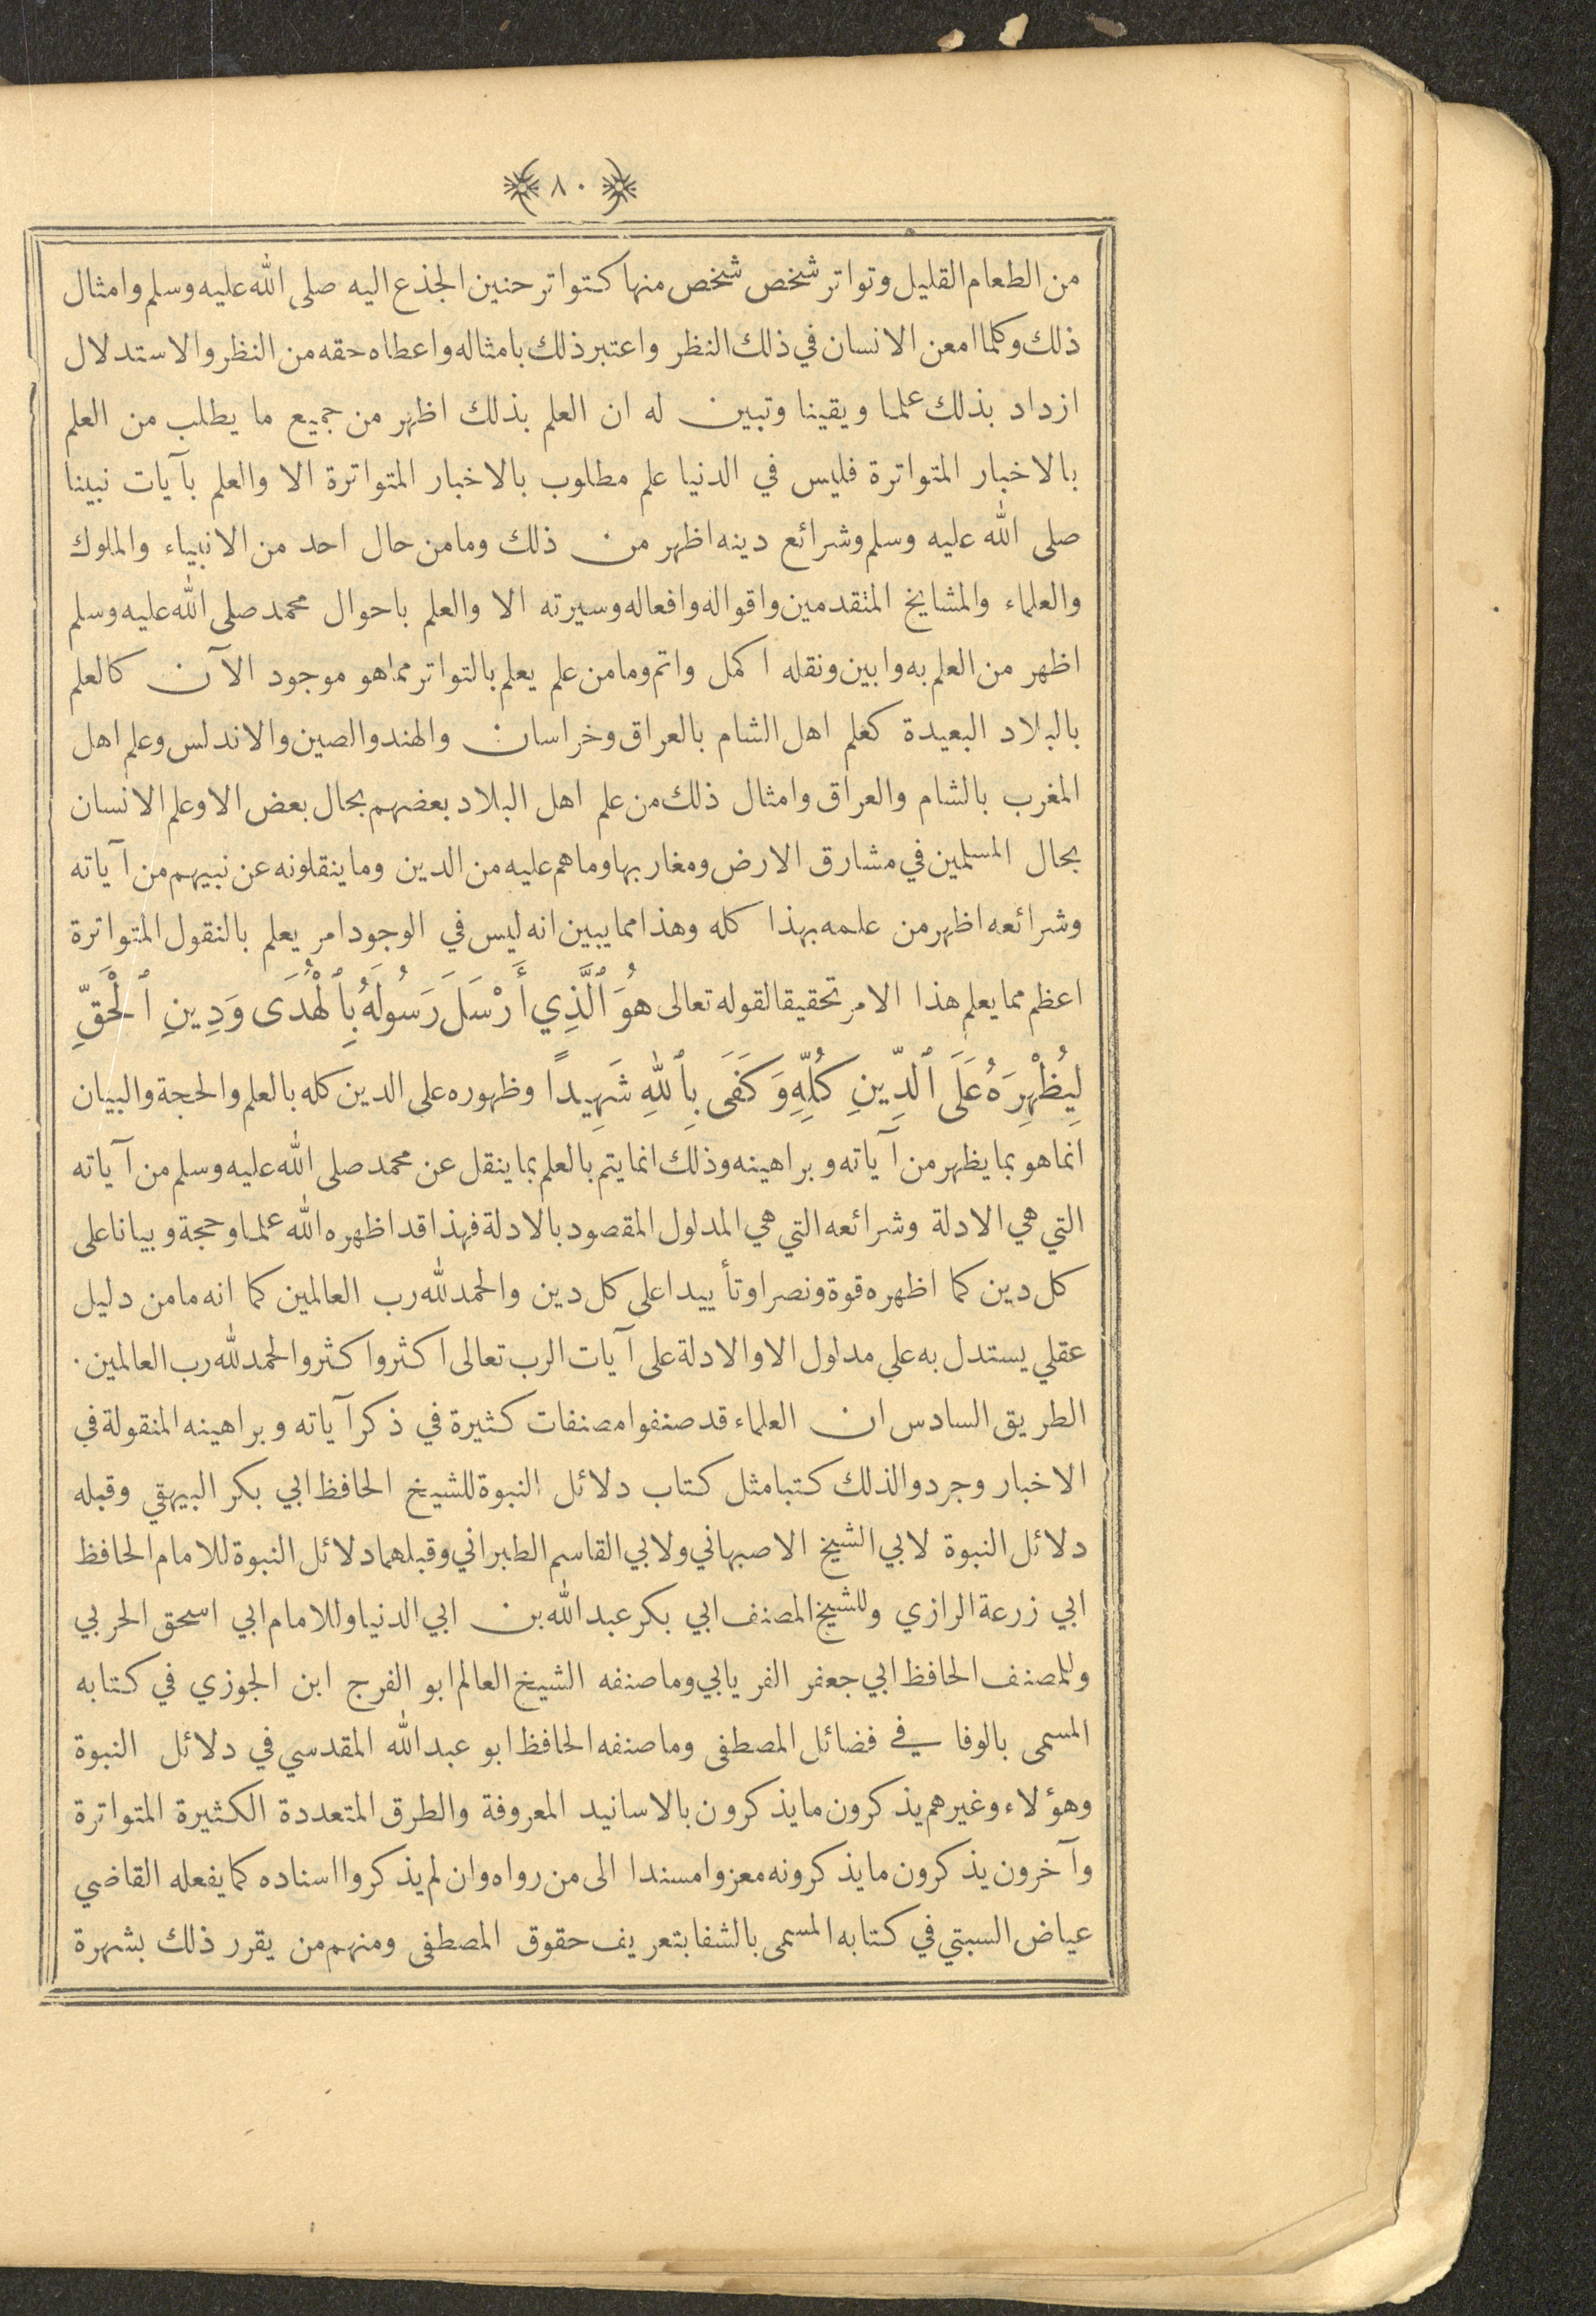 ٨٠
من الطعام القليل وتواتر شخص شخص منها كتواتر حنين الجذع اليه صلى الله عليه وسلم وامثال
ذلك وكلما امعن الانسان في ذلك النظر واعتبر ذلك بامثاله واعطاه حقه من النظر والاستدلال
ازداد بذلك علما ويقينا وتبين له ان العلم بذلك اظهر من جميع ما يطلب من العلم
بالاخبار المتواترة فليس في الدنيا علم مطلوب بالاخبار المتواترة الا والعلم بآيات نبينا
صلى الله عليه وسلم وشرائع دينه اظهر من ذلك وما من حال احد من الانبياء والملوك
والعلماء والمشايخ المتقدمين واقواله وافعاله وسيرته الا والعلم باحوال محمد صلى الله عليه وسلم
اظهر من العلم به وابين ونقله اكمل واتم وما من علم يعلم بالتواتر مما هو موجود الآن كالعلم
بالبلاد البعيدة كعلم اهل الشام بالعراق وخراسان والهند والصين والاندلس وعلم اهل
المغرب بالشام والعراق وامثال ذلك من علم اهل البلاد بعضهم بحال بعض الا وعلم الانسان
بحال المسلمين في مشارق الارض ومغاربها وما هم عليه من الدين وما ينقلونه عن نبيهم من آياته
وشرائعه اظهر من علمه بهذا كله وهذا مما يبين انه ليس في الوجود امر يعلم بالنقول المتواترة
اعظم مما يعلم هذا الامر تحقيقا لقوله تعالى هُوَ ٱلَّذِي أَرْسَلَ رَسُولَهُ بِٱلْهُدَى وَدِينِ ٱلْحَقِّ
لِيُظْهِرَهُ عَلَى ٱلدِّينِ كُلِّهِ وَكَفَى بِٱللهِ شَهِيدًا وظهوره على الدين كله بالعلم والحجة والبيان
انما هو بما يظهر من آياته وبراهينه وذلك انما يتم بالعلم بما ينقل عن محمد صلى الله عليه وسلم من آياته
التي هي الادلة وشرائعه التي هي المدلول المقصود بالادلة فهذا قد اظهره الله علما وحجة وبيانا على
كل دين كما اظهره قوة ونصرا وتأييدا على كل دين والحمد لله رب العالمين كما انه ما من دليل
عقلي يستدل به على مدلول الا والادلة على آيات الرب تعالى اكثر واكثر والحمد لله رب العالمين.
الطريق السادس ان العلماء قد صنفوا مصنفات كثيرة في ذكر آياته وبراهينه المنقولة في
الاخبار وجردوا لذلك كتبا مثل كتاب دلائل النبوة للشيخ الحافظ ابي بكر البيهقي وقبله
دلائل النبوة لابي الشيخ الاصبهاني ولابي القاسم الطبراني وقبلهما دلائل النبوة للامام الحافظ
ابي زرعة الرازي وللشيخ المصنف ابي بكر عبد الله بن ابي الدنيا وللامام ابي اسحق الحربي
وللمصنف الحافظ ابي جعفر الفريابي وما صنفه الشيخ العالم ابو الفرج ابن الجوزي في كتابه
المسمى بالوفا في فضائل المصطفى وما صنفه الحافظ ابو عبد الله المقدسي في دلائل النبوة
وهؤلاء وغيرهم يذكرون ما يذكرون بالاسانيد المعروفة والطرق المتعددة الكثيرة المتواترة
وآخرون يذكرون ما يذكرونه معزوا مسندا الى من رواه وان لم يذكروا اسناده كما يفعله القاضي
عياض السبتي في كتابه المسمى بالشفا بتعريف حقوق المصطفى ومنهم من يقرر ذلك بشهرة